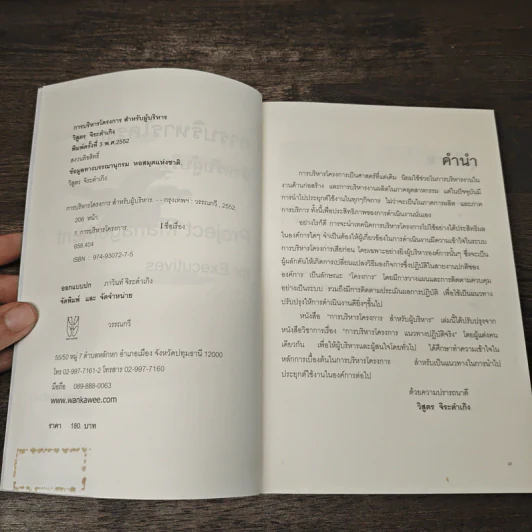 การบริหารโครงการ สำหรับผู้บริหาร
วิสูตร จิระดำเกิง
พิมพ์ครั้งที่ 3 พ.ศ.2552
สงวนลิขสิทธิ์
ข้อมูลทางบรรณานุกรม หอสมุดแห่งชาติ
วิสูตร จิระดำเกิง
การบริหารโครงการ สำหรับผู้บริหาร -- กรุงเทพฯ : วรรณกวี , 2552
206 หน้า
1. การบริหารโครงการ I ชื่อเรื่อง
658.404
ISBN : 974-93072-7-5
ออกแบบปก ภาวินท์ จิระดำเกิง
จัดพิมพ์ และ จัดจำหน่าย
วรรณกวี
55/50 หมู่ 7 ตำบลหลักหก อำเภอเมือง จังหวัดปทุมธานี 12000
โทร 02-997-7161-2 โทรสาร 02-997-7160
มือถือ 089-888-0063
www.wankawee.com
ราคา 180 บาท
คำนำ
การบริหารโครงการเป็นศาสตร์ที่แต่เดิม นิยมใช้ช่วยในการบริหารงานใน
งานด้านก่อสร้าง และการบริหารงานผลิตในภาคอุตสาหกรรม แต่ในปัจจุบันมี
การนำไปประยุกต์ใช้ในงานทุกๆกิจการ ไม่ว่าจะเป็นในภาคการผลิต และภาค
การบริการ ทั้งนี้เพื่อประสิทธิภาพของการดำเนินงานนั่นเอง
อย่างไรก็ดี การจะนำเทคนิคการบริหารโครงการไปใช้อย่างได้ประสิทธิผล
ในองค์การใดๆ จำเป็นต้องให้ผู้เกี่ยวข้องในการดำเนินงานมีความเข้าใจในระบบ
การบริหารโครงการเสียก่อน โดยเฉพาะอย่างยิ่งผู้บริหารองค์การนั้นๆ ซึ่งจะเป็น
ผู้ผลักดันให้เกิดการเปลี่ยนแปลงวิธีมองกิจการซึ่งปฏิบัติในสายงานปกติของ
องค์การ เป็นลักษณะ "โครงการ" โดยมีการวางแผนและการติดตามควบคุม
อย่างเป็นระบบ รวมถึงมีการติดตามประเมินผลการปฏิบัติ เพื่อใช้เป็นแนวทาง
ปรับปรุงให้การดำเนินงานดียิ่งๆขึ้นไป
หนังสือ "การบริหารโครงการ สำหรับผู้บริหาร" เล่มนี้ได้ปรับปรุงจาก
หนังสือวิชาการเรื่อง "การบริหารโครงการ แนวทางปฏิบัติจริง" โดยผู้แต่งคน
เดียวกัน เพื่อให้ผู้บริหารและผู้สนใจโดยทั่วไป ได้ศึกษาทำความเข้าใจใน
หลักการเบื้องต้นในการบริหารโครงการ สำหรับเป็นแนวทางในการนำไป
ประยุกต์ใช้งานในองค์การต่อไป
ด้วยความปรารถนาดี
วิสูตร จิระดำเกิง